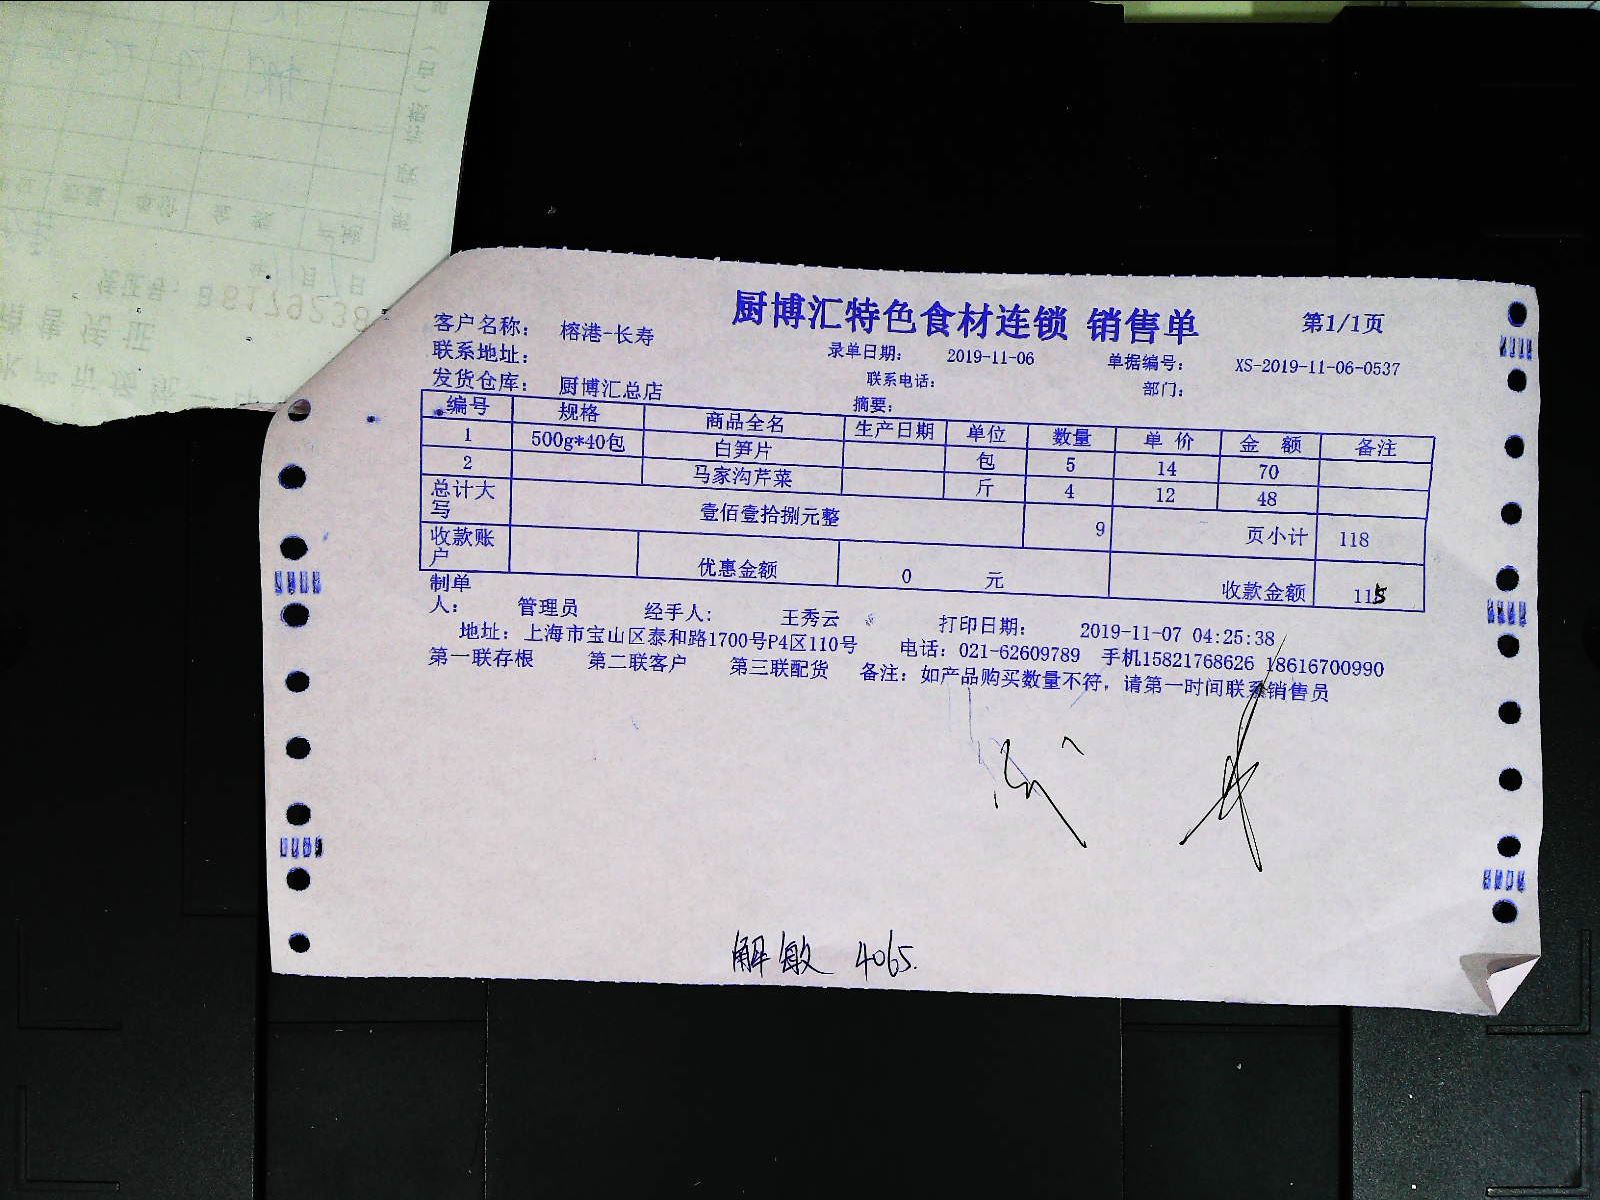 厨博汇特色食材连锁 销售单
第1/1页
客户名称： 榕港-长寿
录单日期： 2019-11-06 单据编号： XS-2019-11-06-0537
联系地址： 联系电话： 部门：
发货仓库： 厨博汇总店 摘要：
编号 规格 商品全名 生产日期 单位 数量 单 价 金 额 备注
1 500g*40包 白笋片 包 5 14 70
2 马家沟芹菜 斤 4 12 48
总计大写 壹佰壹拾捌元整 9 页小计 118
收款账户 优惠金额 0 元 收款金额 115
制单人： 管理员 经手人： 王秀云 打印日期： 2019-11-07 04:25:38
地址：上海市宝山区泰和路1700号P4区110号 电话：021-62609789 手机15821768626 18616700990
第一联存根 第二联客户 第三联配货 备注：如产品购买数量不符，请第一时间联系销售员
解敏 4065.